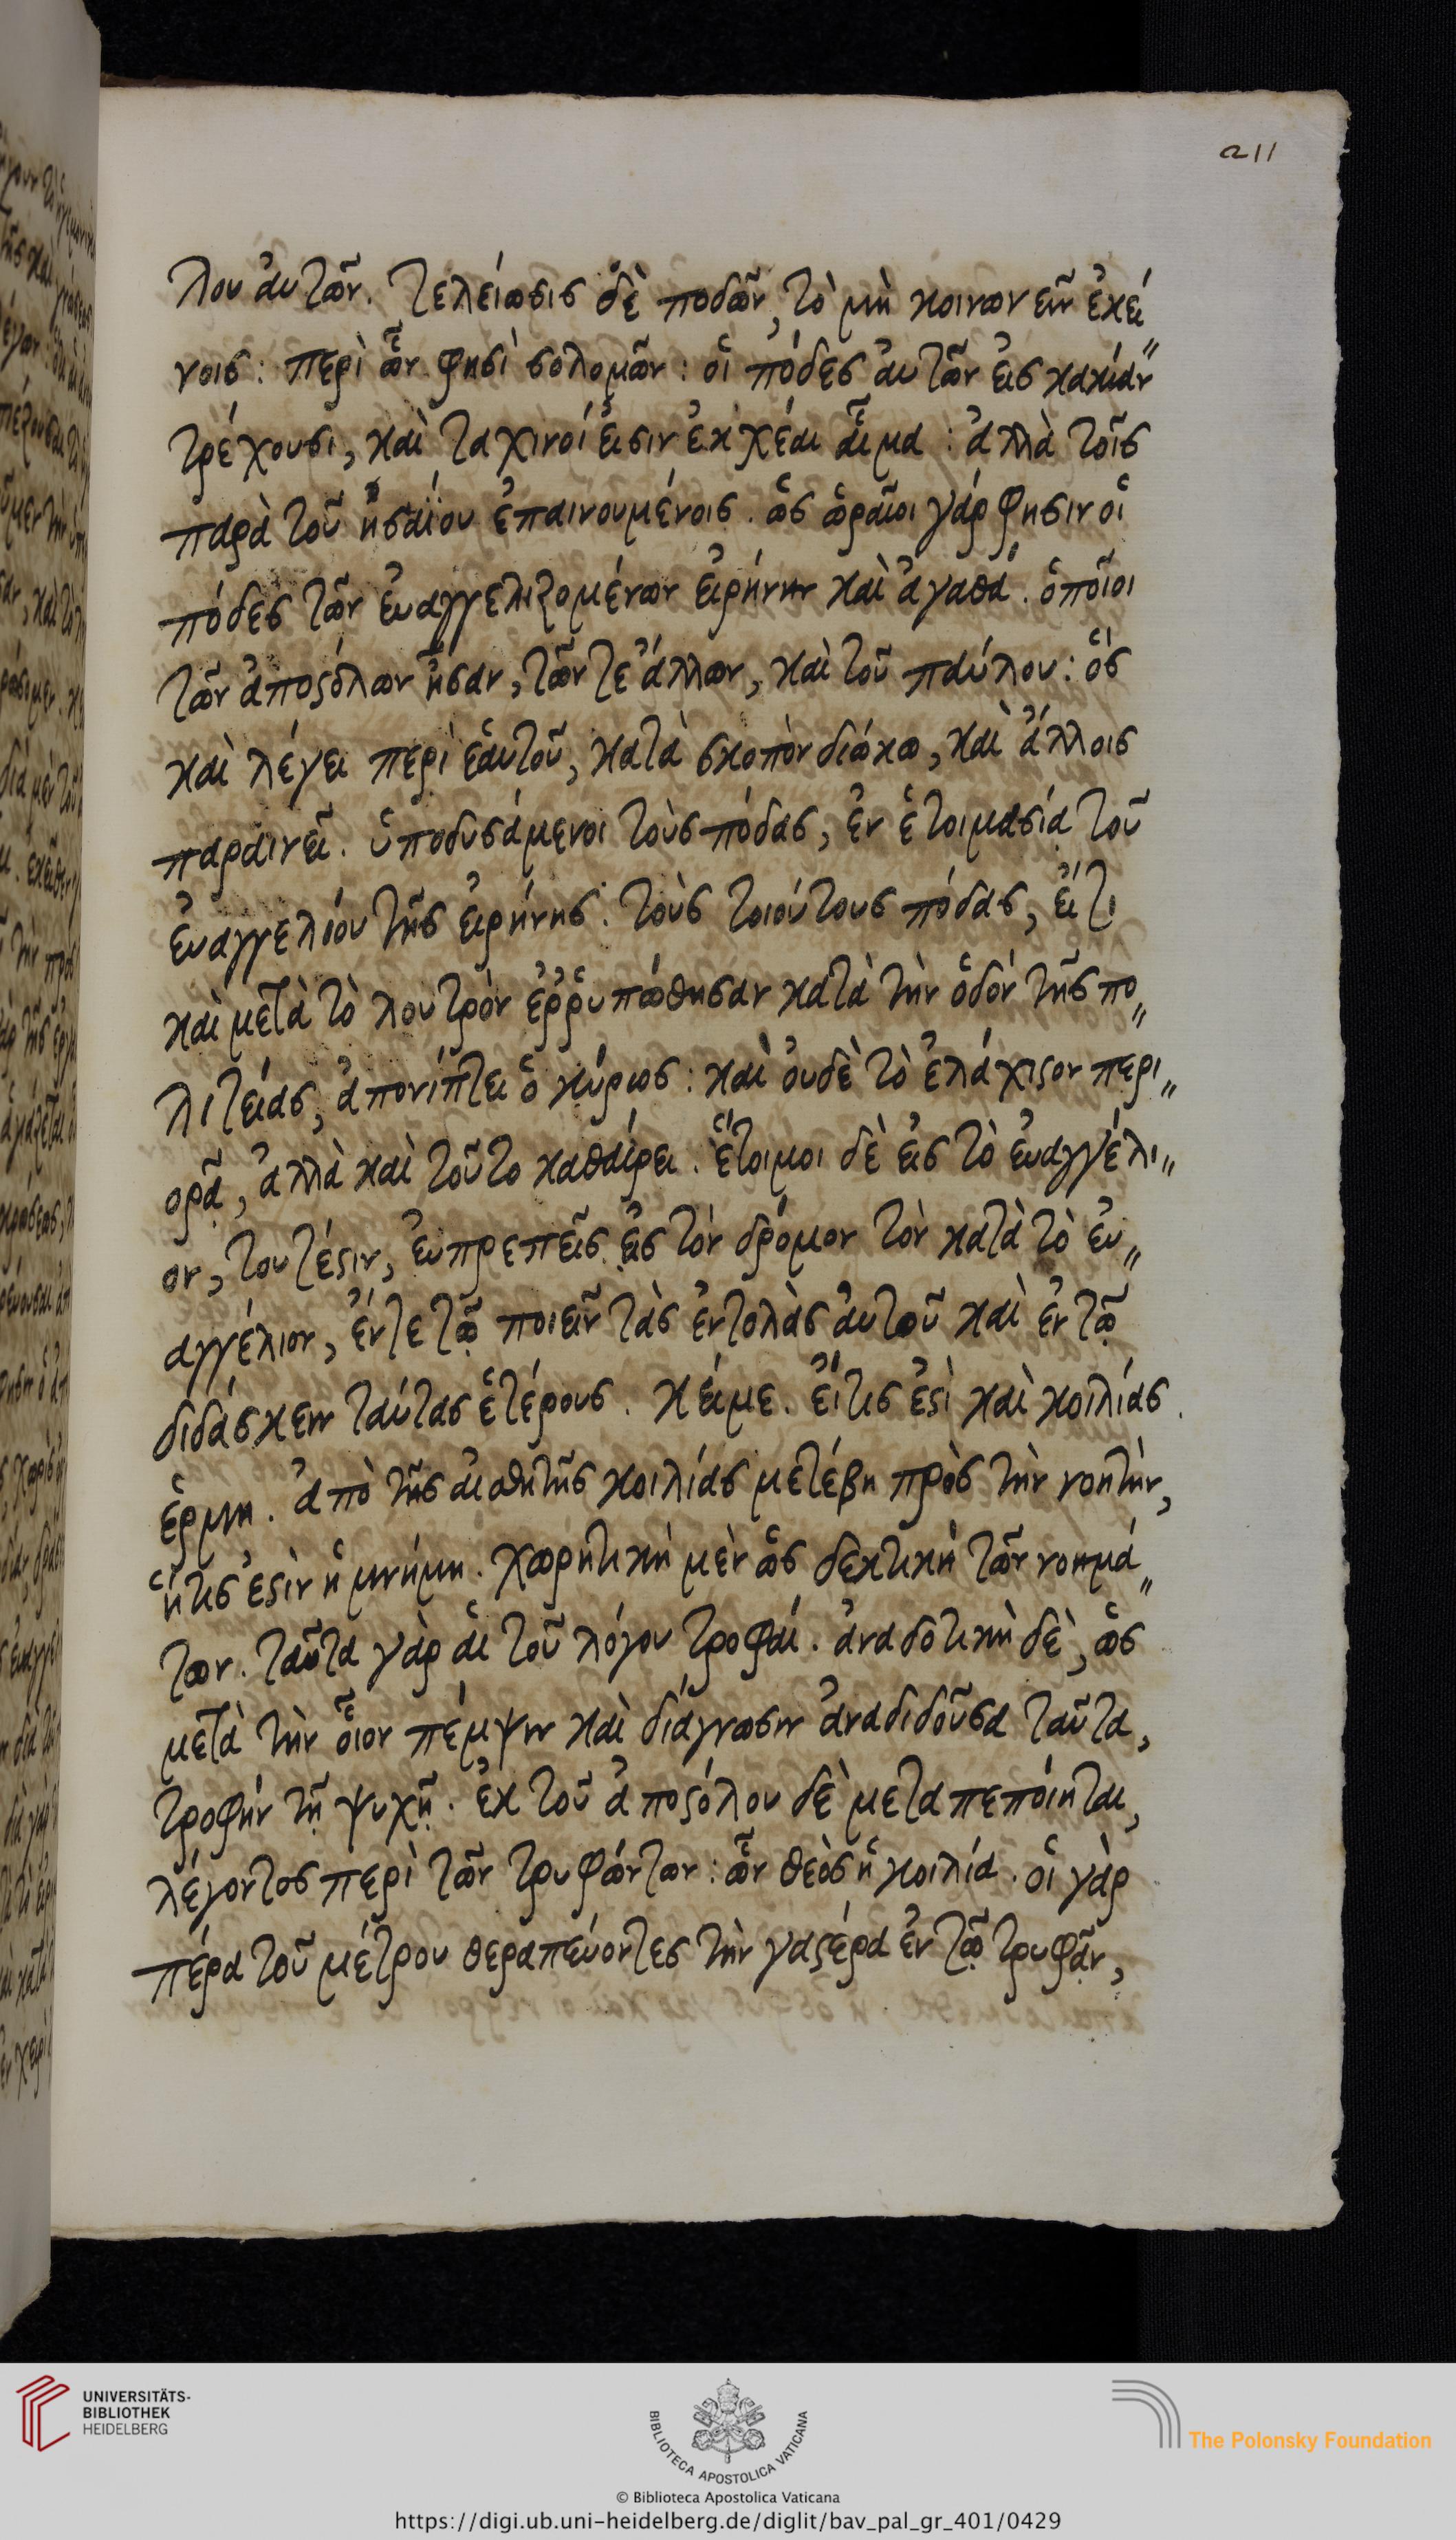 211
λου ἀυτῶν. τελείωσις δὲ ποδῶν, τὸ μὴ κοινωνεῖν ἐκεί〃
νοις: περὶ ὧν φησὶ σολομῶν: οἱ πόδες ἀυτῶν εἰς κακίαν
τρέχουσι, καὶ ταχινοί εἰσιν ἐκχέαι αἷμα: ἀλλὰ τοῖς
παρὰ τοῦ ἠσαΐου ἐπαινουμένοις. ὡς ὡραῖοι γάρ φησιν οἱ
πόδες τῶν ἐυαγγελιζομένων εἰρήνην καὶ ἀγαθά. ὁποῖοι
τῶν ἀποϛόλων ἦσαν, τῶν τε ἄλλων, καὶ τοῦ παύλου: ὃς
καὶ λέγει περὶ ἑαυτοῦ, κατὰ σκοπὸν διώκω, καὶ ἄλλοις
παραινεῖ. ὑποδυσάμενοι τοὺς πόδας, ἐν ἑτοιμασίᾳ τοῦ
ἐυαγγελίου τῆς εἰρήνης. τοὺς τοιούτους πόδας, εἴ τι
καὶ μετὰ τὸ λουτρὸν ἐῤῥυπώθησαν κατὰ τὴν ὁδόν τῆς πο〃
λιτείας, ἀπονίπτει ὁ κύριος: καὶ ὀυδὲ τὸ ἐλάχιϛον περι〃
ορᾷ, ἀλλὰ καὶ τοῦτο καθαίρει. ἕτοιμοι δὲ εἰς τὸ ἐυαγγέλι〃
ον, τουτέϛιν, ἐυπρεπεῖς εἰς τὸν δρόμον τὸν κατὰ τὸ ἐυ〃
αγγέλιον, ἔν τε τῷ ποιεῖν τὰς ἐντολὰς ἀυτοῦ καὶ ἐν τῷ
διδάσκειν ταύτας ἑτέρους. κείμε. εἴ τις ἐϛὶ καὶ κοιλίας.
ἑρμη. ἀπὸ τῆς αἰσθητῆς κοιλίας μετέβη πρὸς τὴν νοητὴν,
ἥτις ἐϛὶν ἡ μνήμη. χωρητικὴ μὲν ὡς δεκτικὴ τῶν νοημά〃
των. ταῦτα γὰρ αἱ τοῦ λόγου τροφαί. ἀναδοτικὴ δὲ, ὡς
μετὰ τὴν οἷον πέμψιν καὶ διάγνωσιν ἀναδιδοῦσα ταῦτα,
τροφὴν τῇ ψυχῇ. ἐκ τοῦ ἀποϛόλου δὲ μεταπεποίηται,
λέγοντος περὶ τῶν τρυφώντων: ὧν θεὸς ἡ κοιλία. οἱ γὰρ
πέρα τοῦ μέτρου θεραπεύοντες τὴν γαϛέρα ἐν τῷ τρυφᾷν,
UNIVERSITÄTS-
BIBLIOTHEK
HEIDELBERG
BIBLIOTECA APOSTOLICA VATICANA
The Polonsky Foundation
© Biblioteca Apostolica Vaticana
https://digi.ub.uni-heidelberg.de/diglit/bav_pal_gr_401/0429